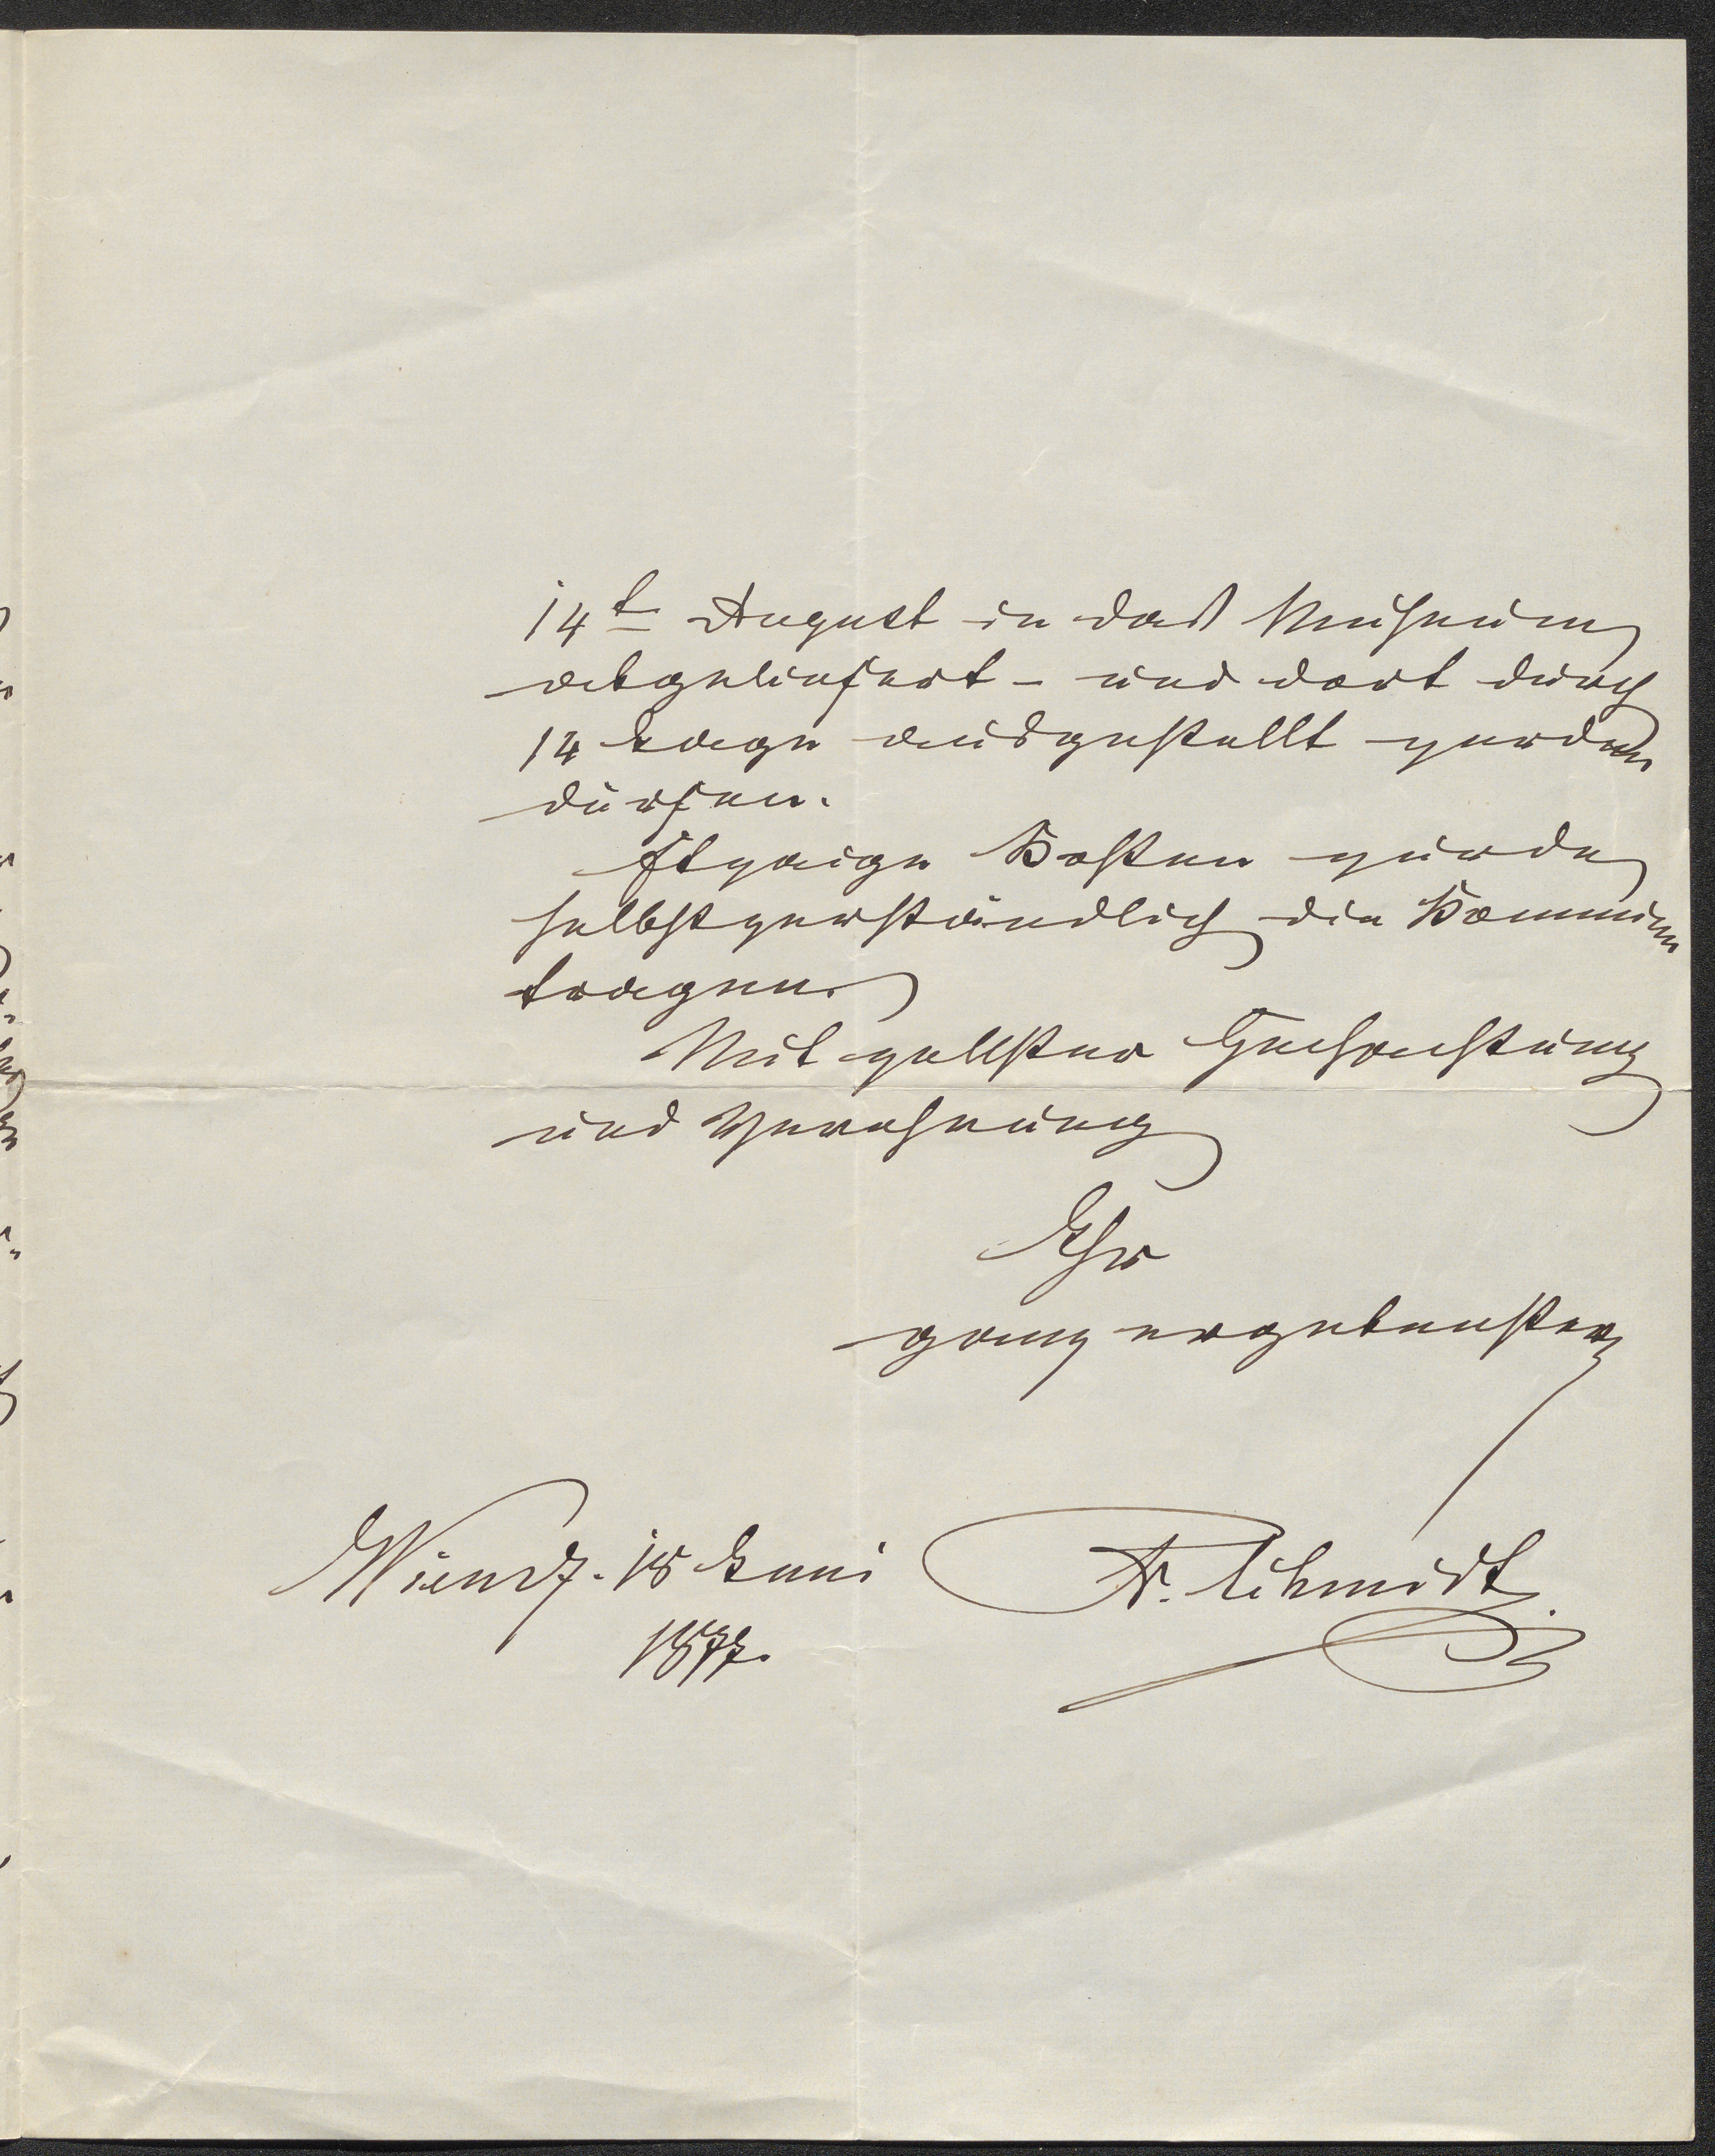 14t August in das Museum
abgeliefert - und dort durch
14 Tage ausgestellt werden
dürfen.
Etwaige Kosten würde
selbstverständlich die Kommune
tragen.
Mit vollster Hochachtung
und Verehrung
Ihr
ganz ergebenster
Wien d. 18 Juni
1877.
Fr. Schmidt